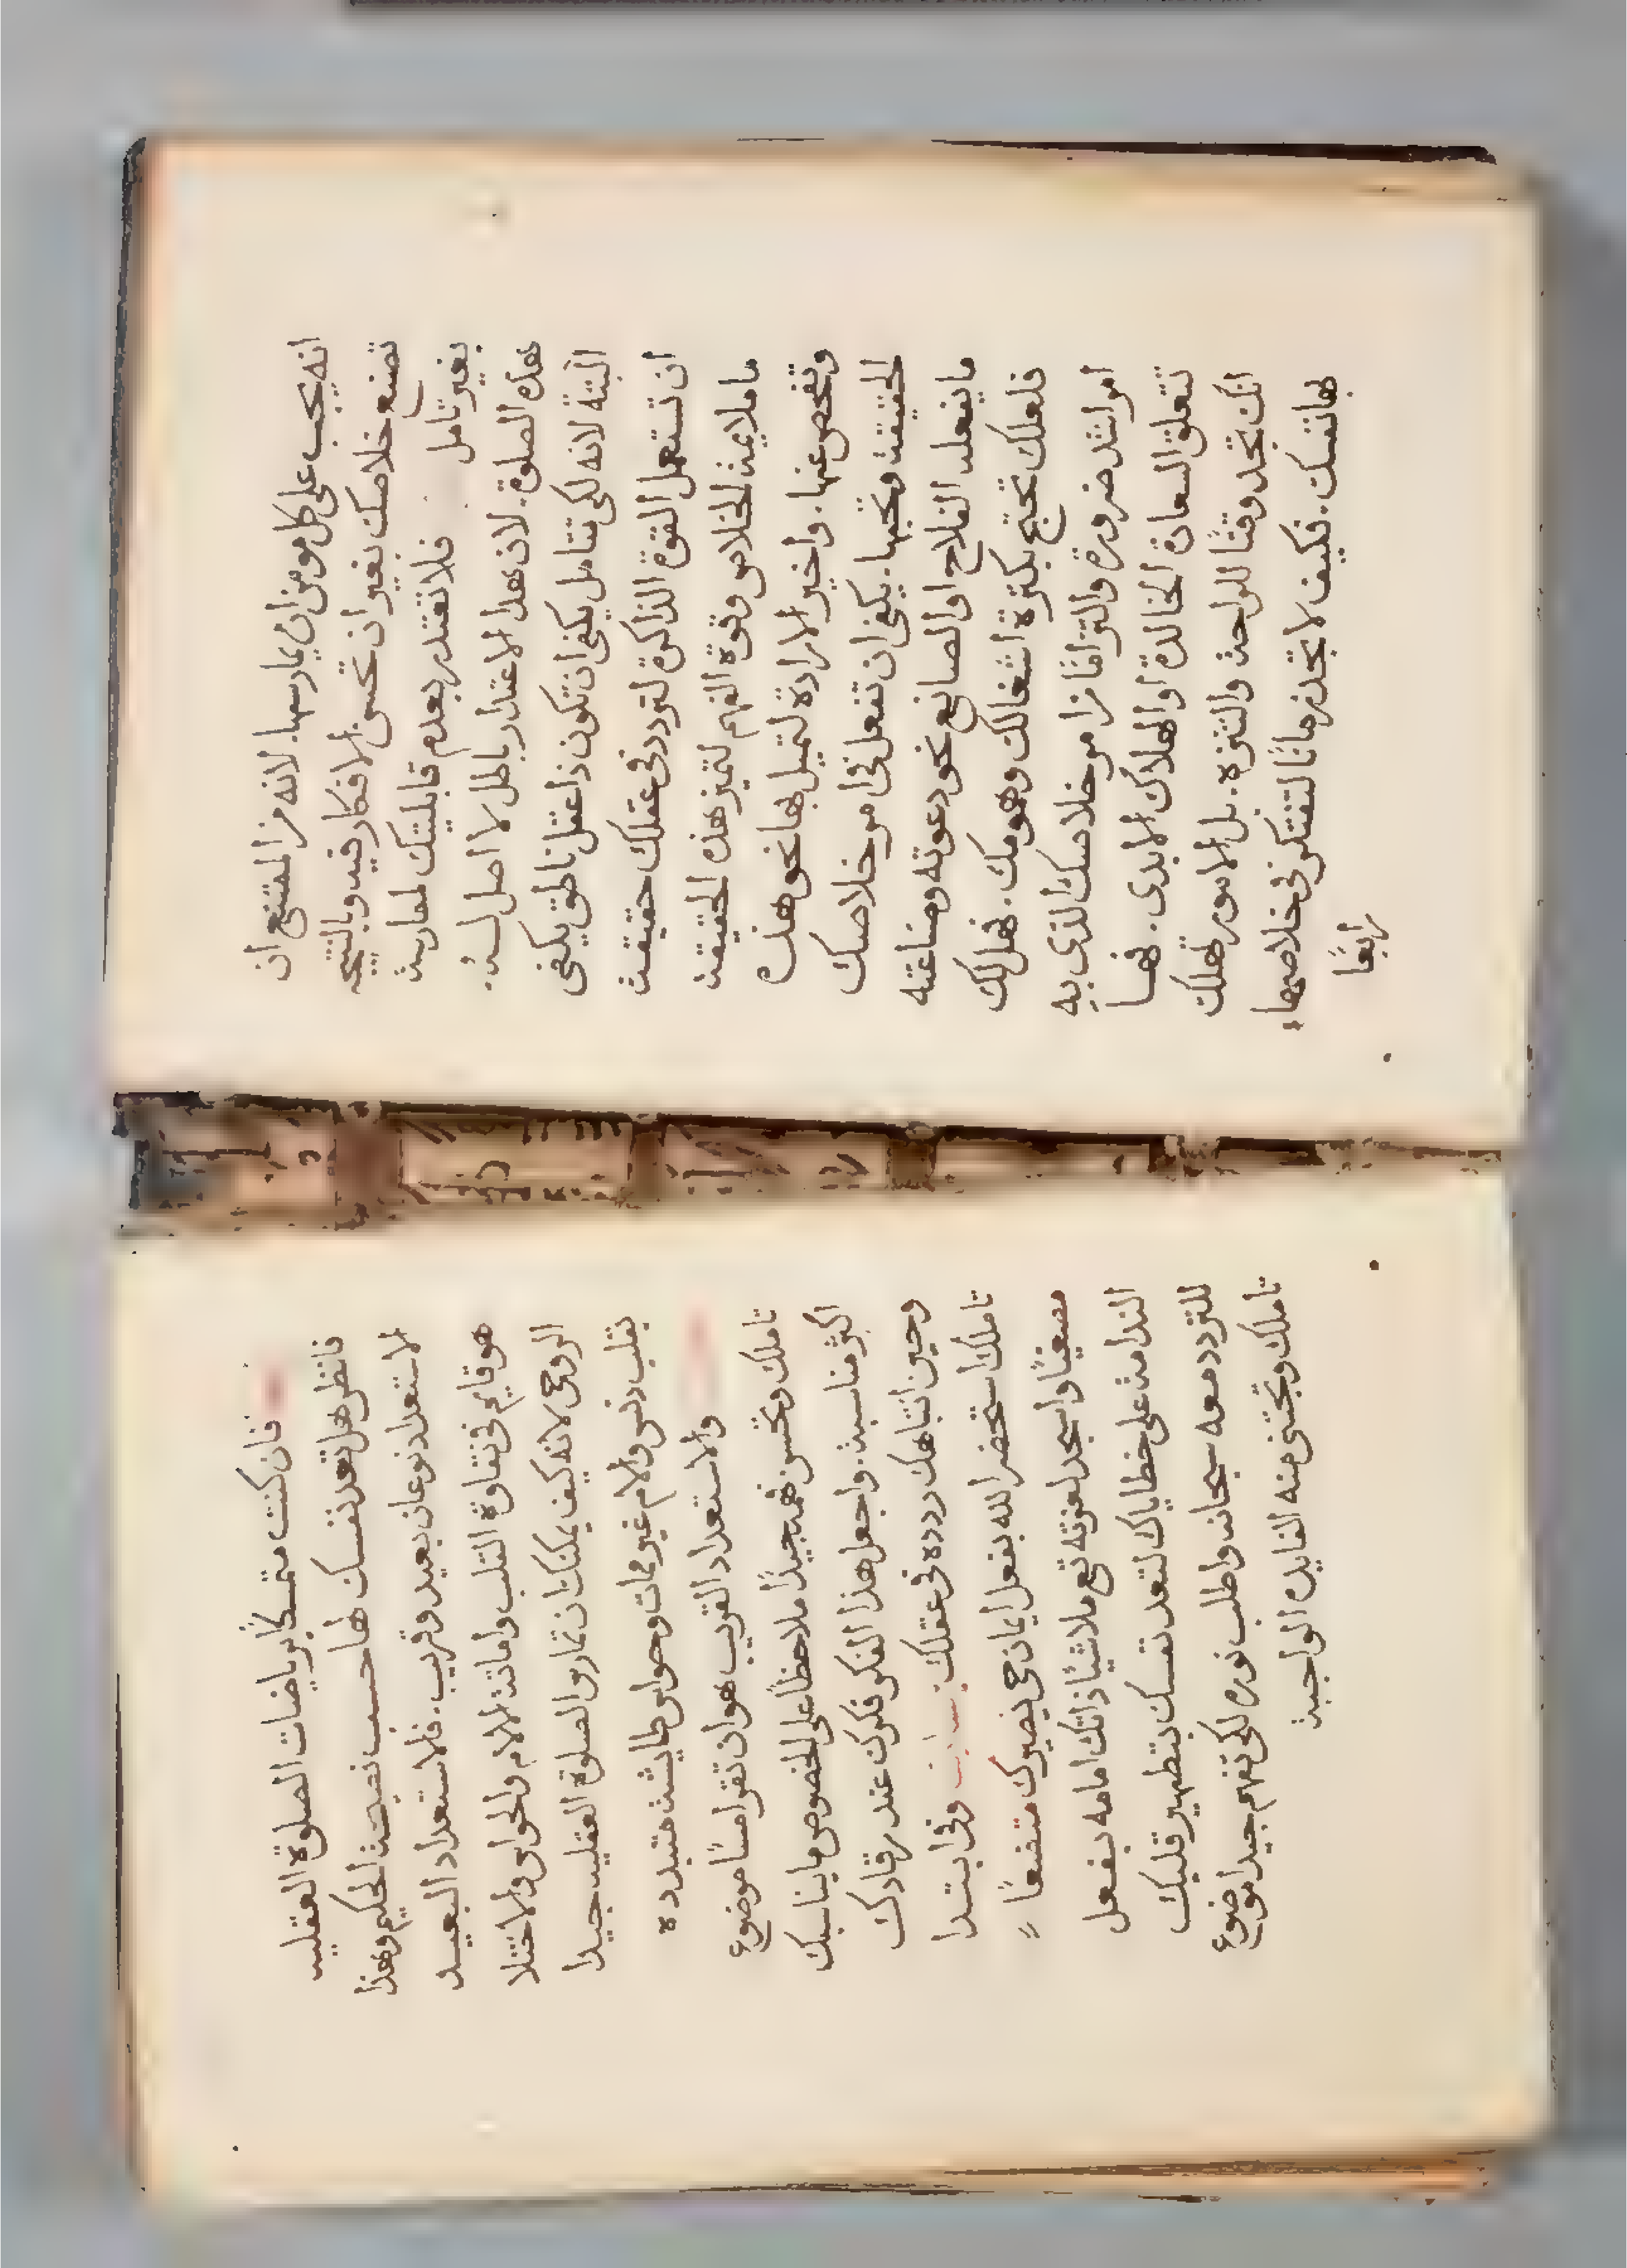 انه يجب على كل مومن ان يمارسها. لانه من الممتنع ان
تصنع خلاصك بغير ان تحسن الافكار فيه وبالنتيجه
بغير تامل فلا تعتدر بعدم قابليتك لممارسة
هده الصلوة. لان هدا الاعتدار باطل لا اصل له.
البتة لانه لكي تتامل يكفي ان تكون ذا عقل ناطق يكفي
ان تستعمل القوة الذاكرة لتردد في عقلك حقيقة
ما ملايمة لخلاص وقوة الفهم لتميز هذه الحقيقة
وتفحص عنها. واخير الارادة لتميل بها نحو هذه
الحقيقة وتحبها. يكفي ان تفعل في امر خلاصك
ما يفعله الفلاح او الصانع نحو دعوته وصناعته
فلعلك تحتج بكثرة اشغالك وهمومك. فهل لك
امر اشد ضروره والتزامًا من امر خلاصك الذي به
تتعلق السعادة الخالدة او الهلاك الابدي. فها
انك تجد وقتًا للراحة والتنزه. بل لامور تهلك
بها نفسك. فكيف لا تجد زمانًا لتفتكر في خلاصها
رابعًا
فان كنت متمسكًا برياضات الصلوة العقليه
فانظر هل تعد نفسك لها حسب نصيحة الحكيم وهذا
الاستعداد نوعان بعيد وقريب. فالاستعداد البعيد
هو قايم في نقاوة القلب واماتة الالام والحواس والاختلا
الروحي لانه كيف يمكنك ان تمارس الصلوة العقليه جيدا
بقلب دنس والام غير مماته وحواس طايشة متبدده
والاستعداد القريب هو ان تقرا مسًا موضوع
تاملك وتحسن فهمه جيدًا ملاحظًا على الخصوص ما يناسبك
اكثر مناسبة. واجعل هذا الفكر فكرك عند رقادك
وحين انتباهك ردده في عقلك وفي ابتدا
تاملك استحضر الله بفعل ايمان حي يصيرك متضعًا
مصغيًا واسجد لعزته تع ملاشيًا ذاتك امامه بفعل
الندامة على خطاياك لتعد نفسك بتطهير قلبك
للتردد معه سبحانه واطلب نوره لكي تفهم جيدا موضوع
تاملك وتجتني منه الفايده الواجبة